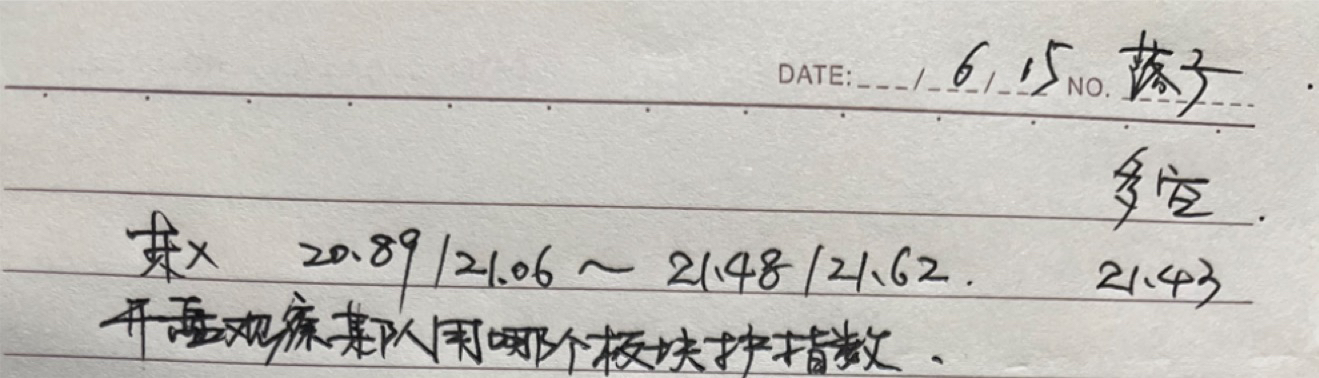 DATE: / 6 / 15 NO. 落子
多空.
某X 20.89/21.06～21.48/21.62. 21.43
开盘观察某队用哪个板块护指数、